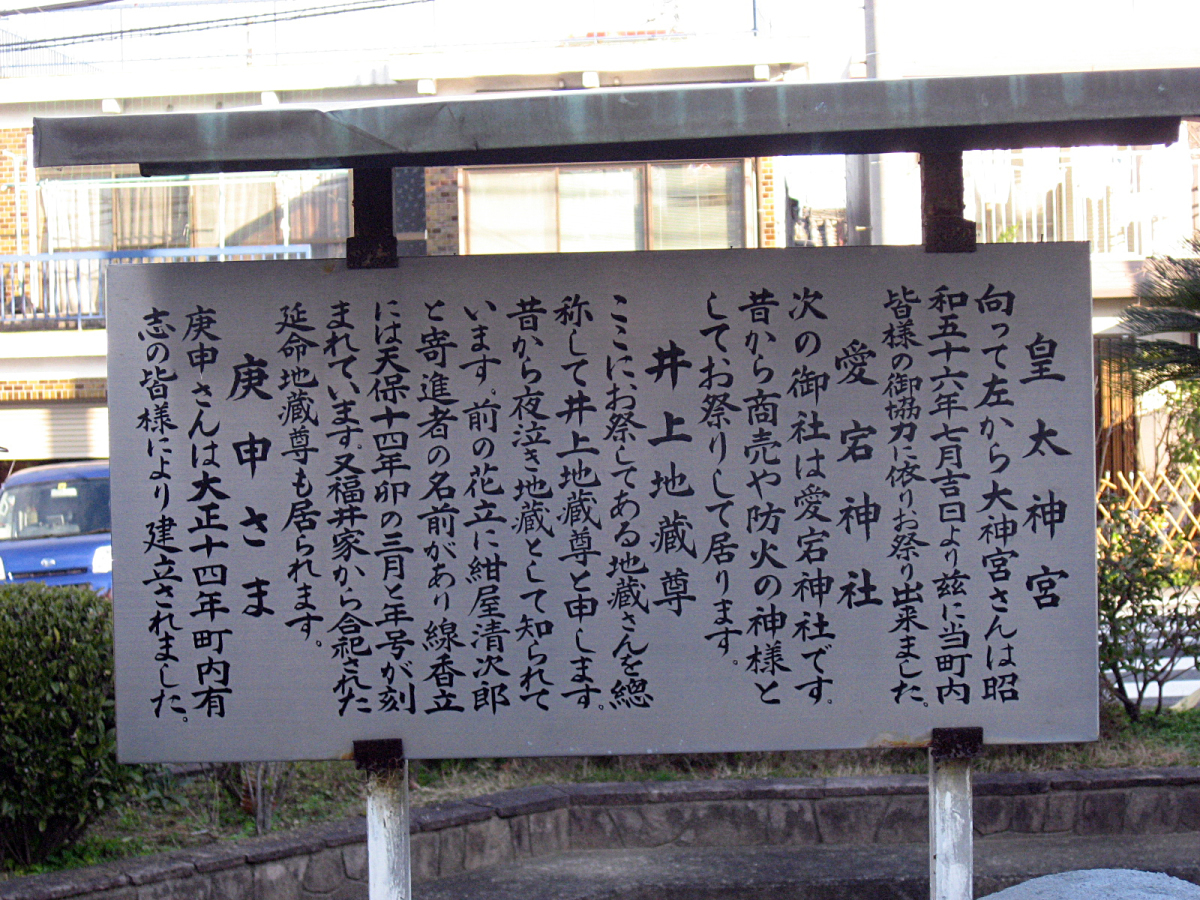 皇太神宮
向って左から大神宮さんは昭
和五十六年七月吉日より玆に当町内
皆様の御協力に依りお祭り出来ました。
愛宕神社
次の御社は愛宕神社です。
昔から商売や防火の神様と
してお祭りして居ります。
井上地蔵尊
ここにお祭してある地蔵さんを總
称して井上地蔵尊と申します。
昔から夜泣き地蔵として知られて
います。前の花立に紺屋清次郎
と寄進者の名前があり線香立
には天保十四年卯の三月と年号が刻
まれています。又福井家から合祀された
延命地蔵尊も居られます。
庚申さま
庚申さんは大正十四年町内有
志の皆様により建立されました。